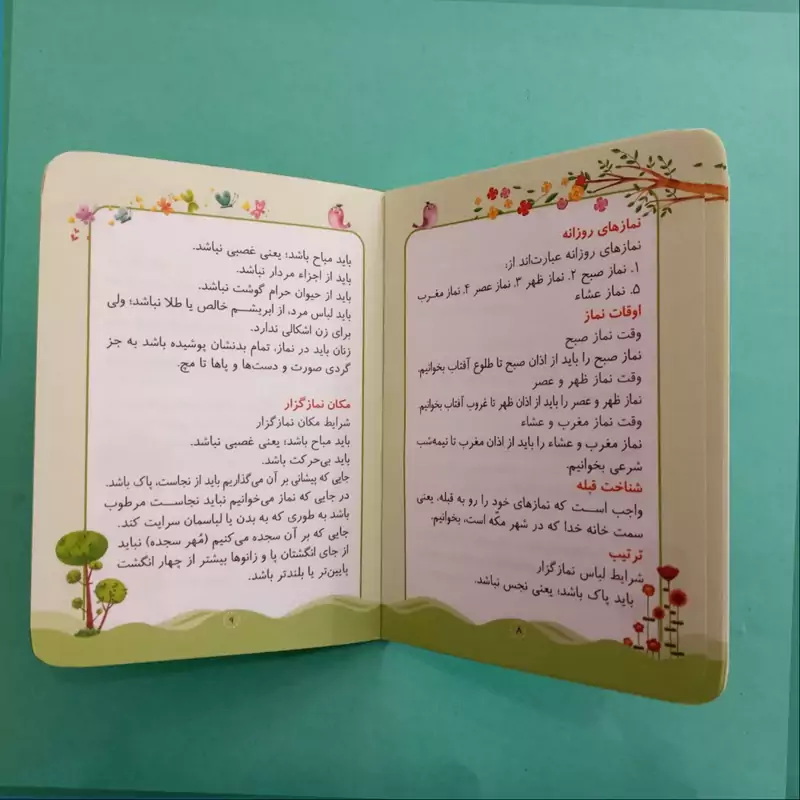 نمازهای روزانه
نمازهای روزانه عبارت‌اند از:
۱. نماز صبح ۲. نماز ظهر ۳. نماز عصر ۴. نماز مغرب
۵. نماز عشاء
اوقات نماز
وقت نماز صبح
نماز صبح را باید از اذان صبح تا طلوع آفتاب بخوانیم.
وقت نماز ظهر و عصر
نماز ظهر و عصر را باید از اذان ظهر تا غروب آفتاب بخوانیم.
وقت نماز مغرب و عشاء
نماز مغرب و عشاء را باید از اذان مغرب تا نیمه‌شب
شرعی بخوانیم.
شناخت قبله
واجب است که نمازهای خود را رو به قبله، یعنی
سمت خانه خدا که در شهر مکّه است، بخوانیم.
ترتیب
شرایط لباس نمازگزار
باید پاک باشد؛ یعنی نجس نباشد.
۸
باید مباح باشد؛ یعنی غصبی نباشد.
باید از اجزاء مردار نباشد.
باید از حیوان حرام گوشت نباشد.
باید لباس مرد، از ابریشم خالص یا طلا نباشد؛ ولی
برای زن اشکالی ندارد.
زنان باید در نماز، تمام بدنشان پوشیده باشد به جز
گردی صورت و دست‌ها و پاها تا مچ.
مکان نمازگزار
شرایط مکان نمازگزار
باید مباح باشد؛ یعنی غصبی نباشد.
باید بی‌حرکت باشد.
جایی که پیشانی بر آن می‌گذاریم باید از نجاست، پاک باشد.
در جایی که نماز می‌خوانیم نباید نجاست مرطوب
باشد به طوری که به بدن یا لباسمان سرایت کند.
جایی که بر آن سجده می‌کنیم (مُهر سجده) نباید
از جای انگشتان پا و زانوها بیشتر از چهار انگشت
پایین‌تر یا بلندتر باشد.
۹